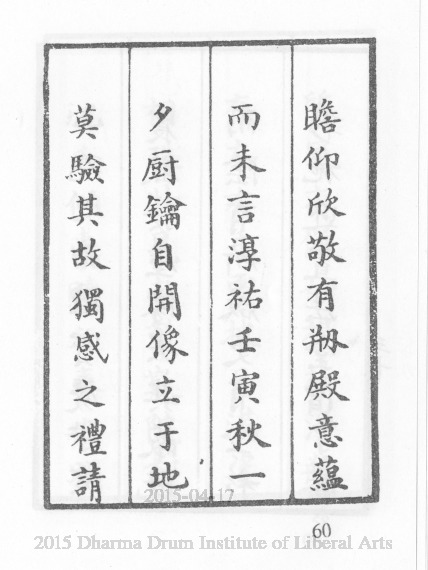 瞻仰欣敬有剙殿意蘊
而未言淳祐壬寅秋一
夕厨鑰自開像立于地
莫驗其故獨感之禮請
2015-04-17
60
2015 Dharma Drum Institute of Liberal Arts